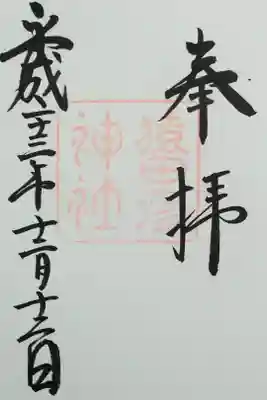 奉拝
神社
平成二十三年十二月十二日